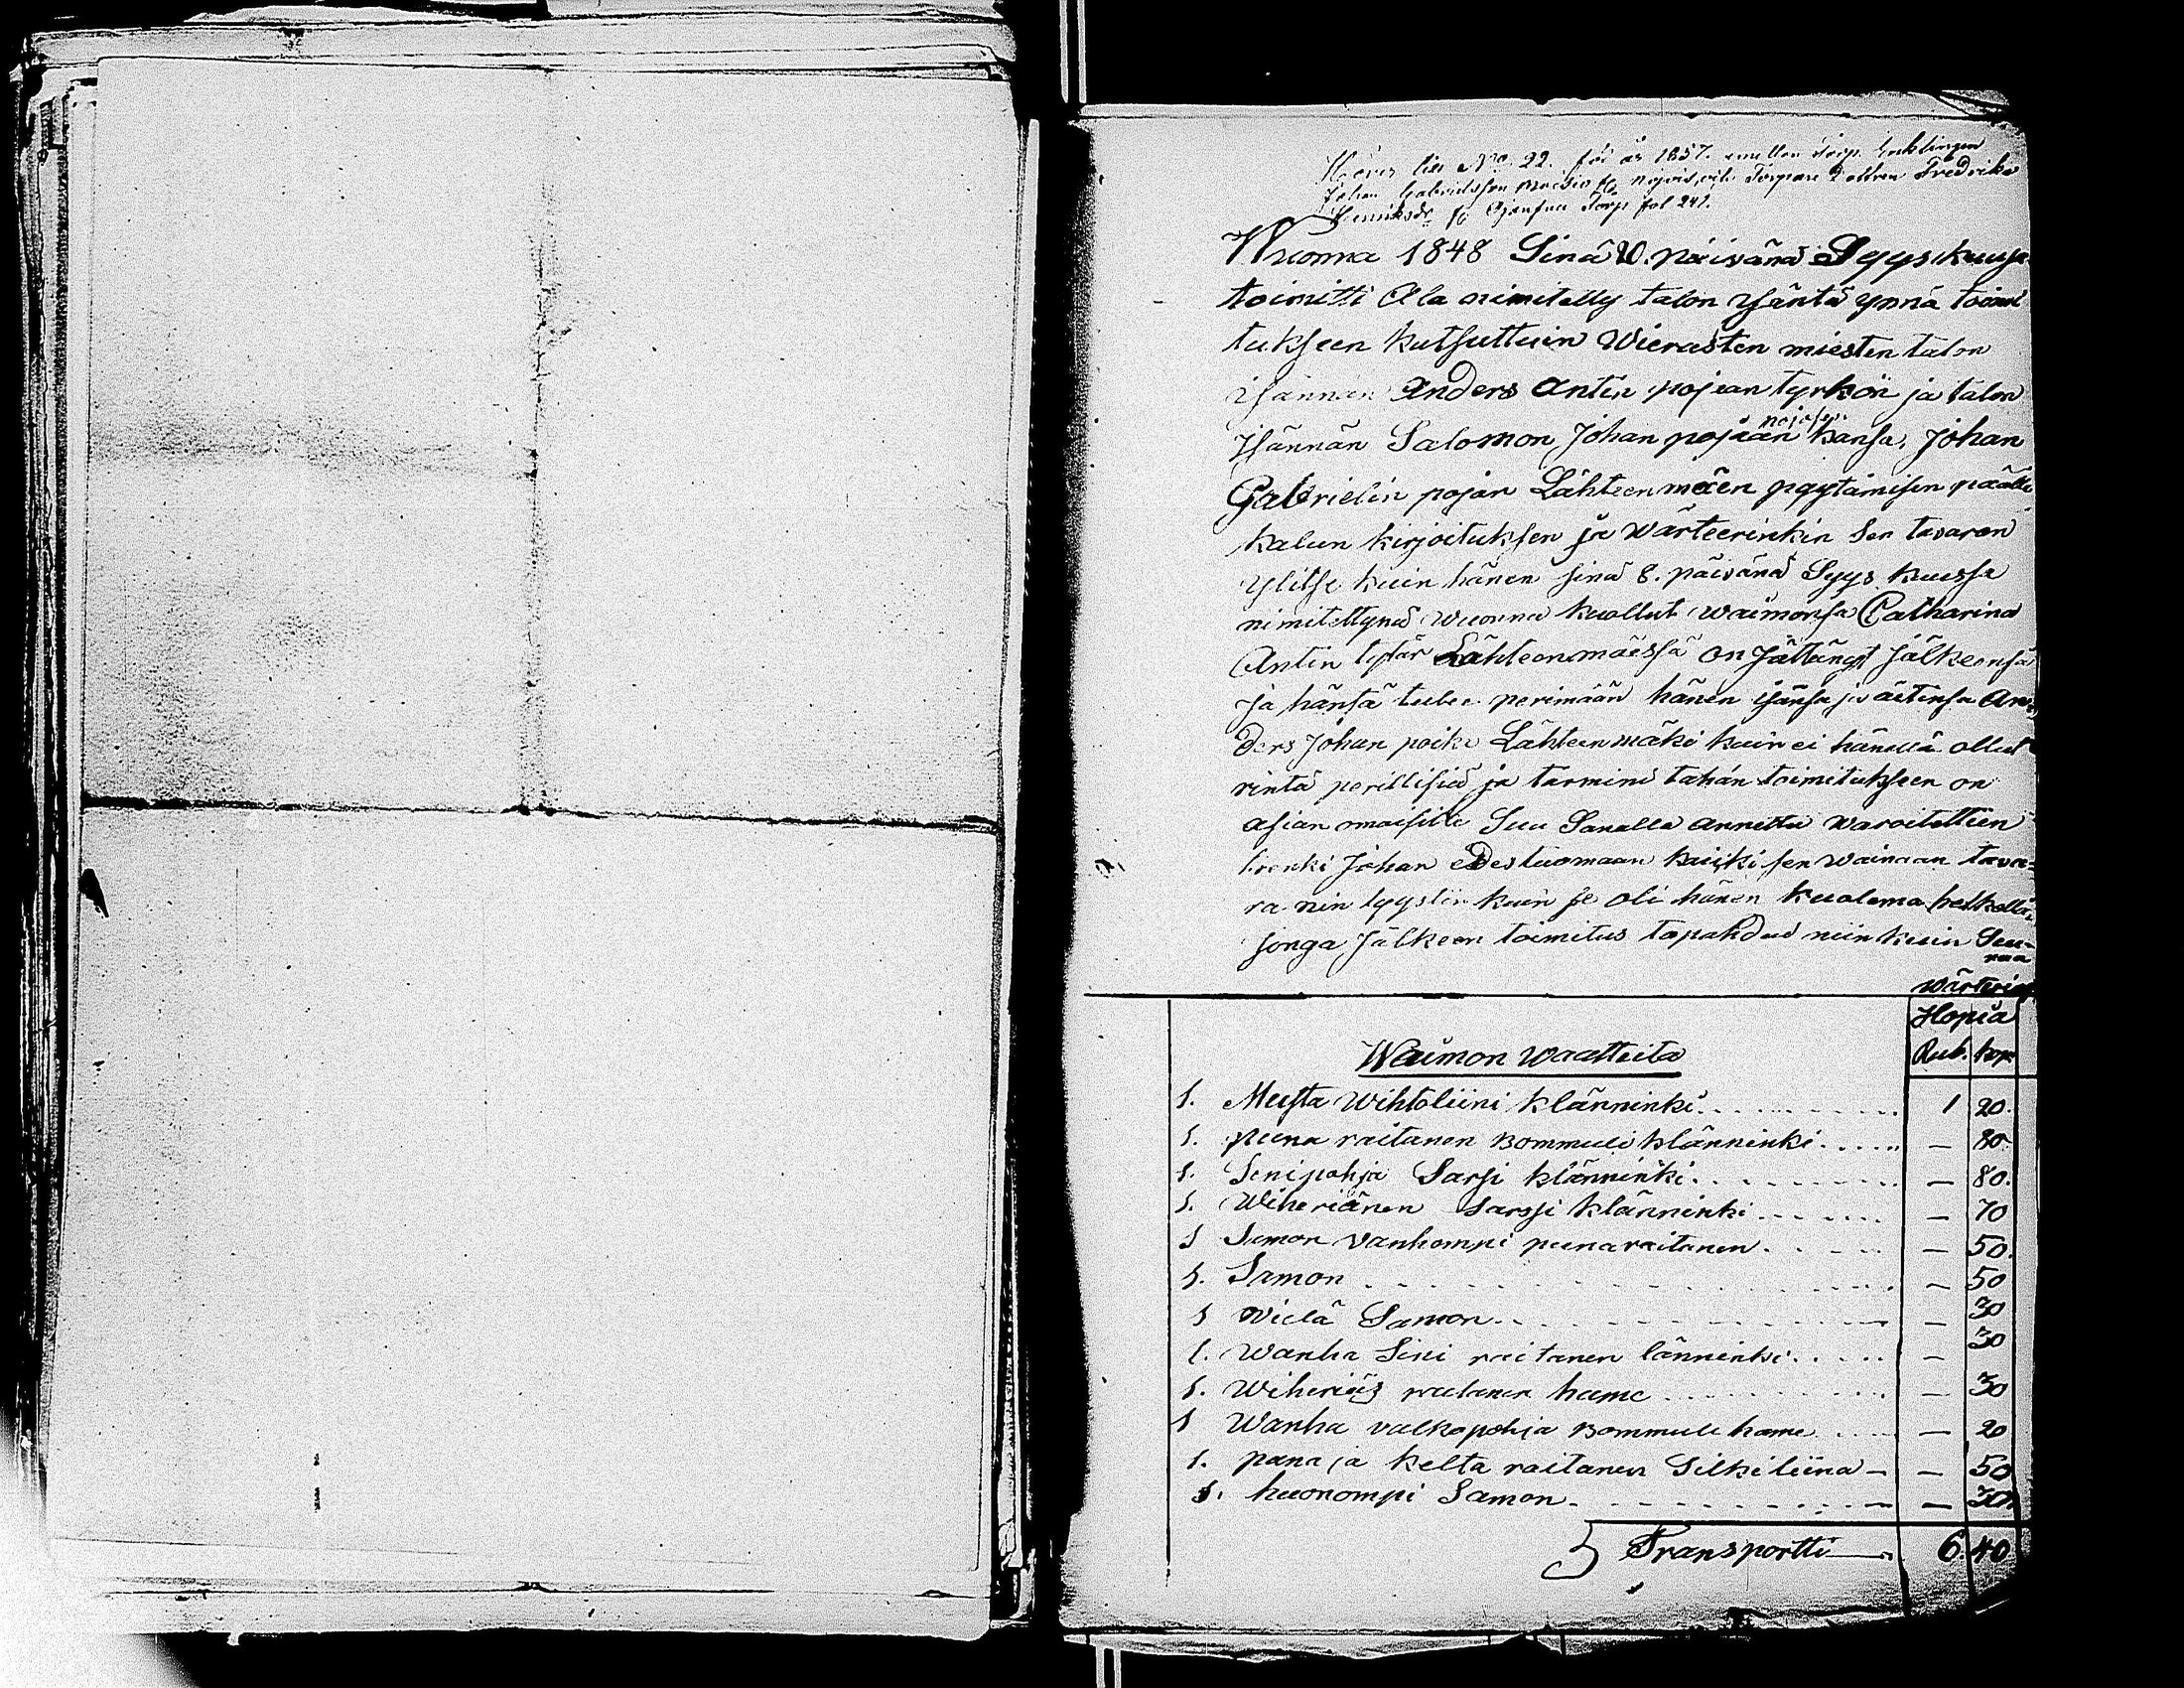 Hörer till No. 22. för år 1857. emellan Torp. Enklingen
Johan Gabrielsson och Torpare Dottren Fredrika
Henriksdr fr Torp fol 241.
Wuonna 1848 Sinä 20. päivänä Syys kuusa
toimitti Ala nimitetty talon Isäntä ynnä toimi
tukseen kutsuttuin Wierasten miesten talon
isännän Anders Antin pojan tyrkön ja talon
Isännän Salomon Johan pojaan kansa, Johan
Gabrielin pojan Lähteenmäen pyytämisen päälle
kalun kirjoituksen ja Wärteerinkin sen tavaran
ylitse kuin hänen sinä 8. päivänä Syys kuussa
nimitettynä wuonna kuollut waimonsa Catharina
Antin tytär Lähteenmäessä on Jättänyt Jälkeensä
Ja häntä tulee perimään hänen isänsä ja äitinsä An-
ders Johan poika Lähteenmäki kuin ei hänellä ollut
rintä perillisiä ja tarminä tähän toimitukseen on
asian omaisille Suu Sanalla annettu waroitettiin
trenki Johan edestuomaan kaikki sen wainaan tava-
ra nin tyystin kuin se oli hänen kuolema hetkellä
jonga Jälkeen toimitus tapahdui niin kuin Seu-
raa
Wärterin
Hopia
Waimon waatteita Rub. kop
1. Musta Wihtoliini klänninki 1 20.
1. puna raitanen Bommuli klänninki — 80.
1. Sinipohja Sarsi klänninki — 80.
1. Wiheriänen Sarssi klänninki — 70
1 Samon vanhompi punaraitanen — 50.
1. Samon — 50
1 Wielä Samon — 30
1. Wanha Sini raitanen länninki — 30
1. Wiheriäs raitanen hame — 30
1 Wanha valkopohja Bommuli hame — 20
1. puna ja kelta raitanen Silkiliina — — 50
1. huonompi Samon — 30
Transportti 6. 40